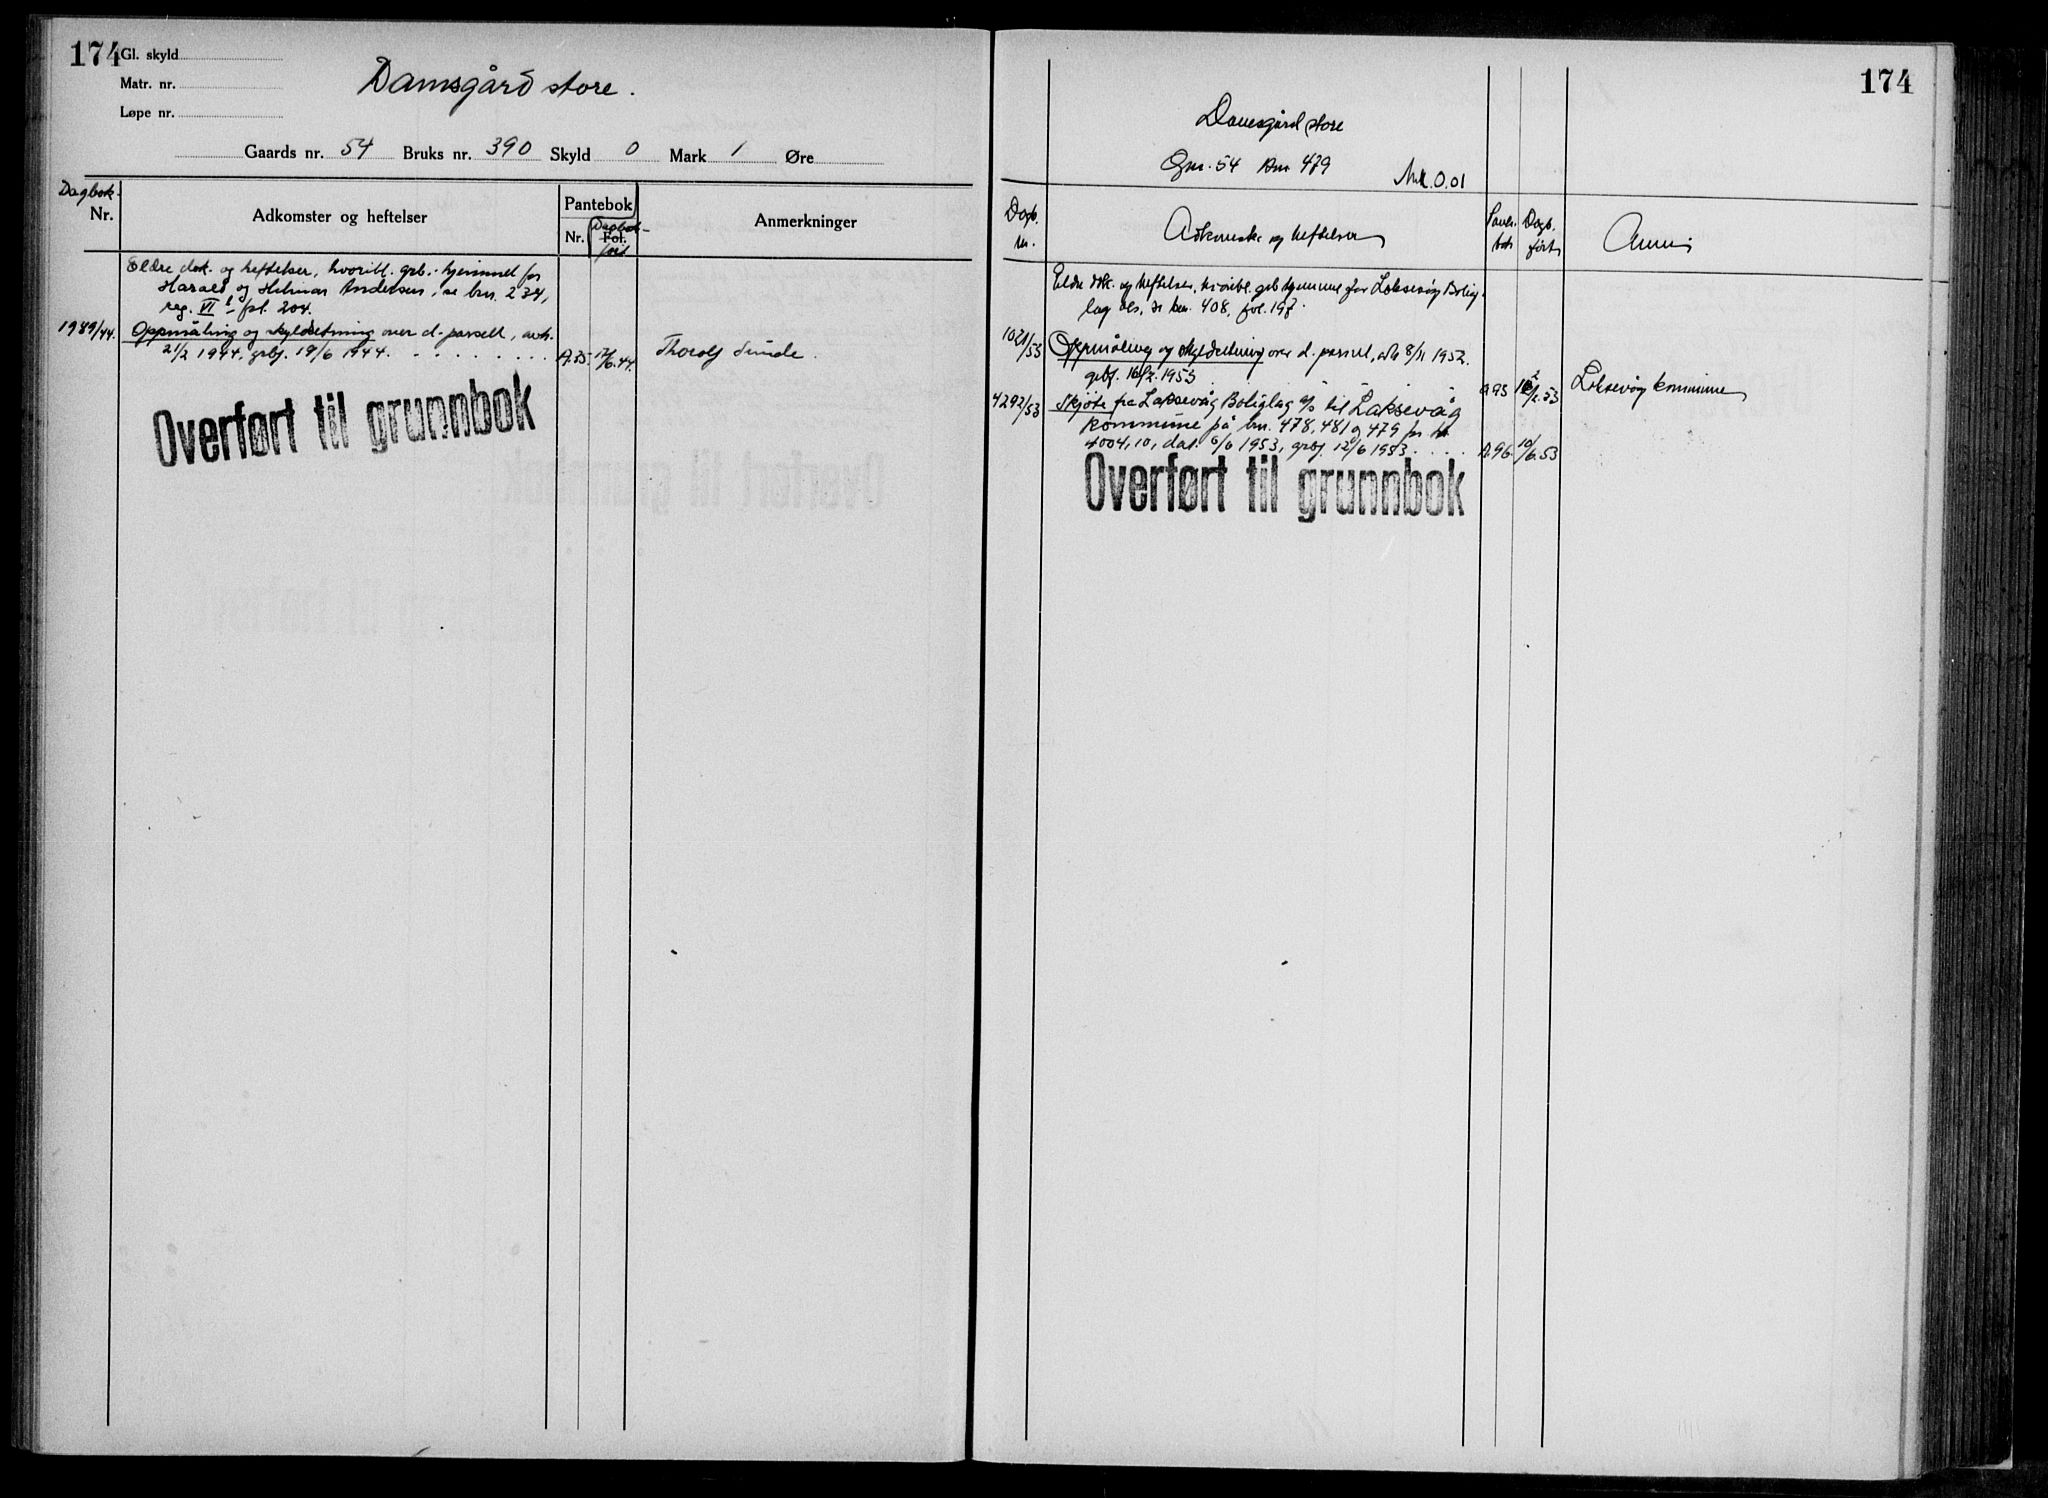 174
Gl. skyld
Matr. nr.
Løpe nr.
Damsgård store.
Gaards nr. 54 Bruks nr. 390 Skyld 0 Mark 1 Øre
Dagbok-
Nr.
Adkomster og heftelser
Pantebok
Nr.
Fol.
Dagbok-
ført
Anmerkninger
Eldre dok. og heftelser, hvoribl. grb. hjemmel for
Harald og Helmar Andersen, se bnr. 234,
reg. VI fol. 204.
1989/44. Oppmåling og skyldsetning over d. parsell, avh.
21/2 1944, grbf. 19/6 1944. A.75. 17/6.44. Thorolf Sunde.
Overført til grunnbok
174
Damsgård store
Gnr. 54 Bnr 479 Mk. 0.01
Dagb.
nr.
Adkomster og heftelser
Pante-
bok
Dagb.
ført
Anm.
Eldre dok. og heftelser, hvoribl. grb hjemmel for Laksevåg Bolig-
lag a/s, se bnr. 408, fol. 197.
1021/53 Oppmåling og skyldsetning over d. parsel, avh 8/11 1952.
grbf. 16/2. 1953 A 95 16/2.53 Laksevåg kommune
4292/53 Skjøte fra Laksevåg Boliglag a/s til Laksevåg
kommune på bnr. 478, 481 og 479 for kr
4004,10, dat. 6/6 1953, grbf 12/6 1953. A.96. 10/6.53
Overført til grunnbok